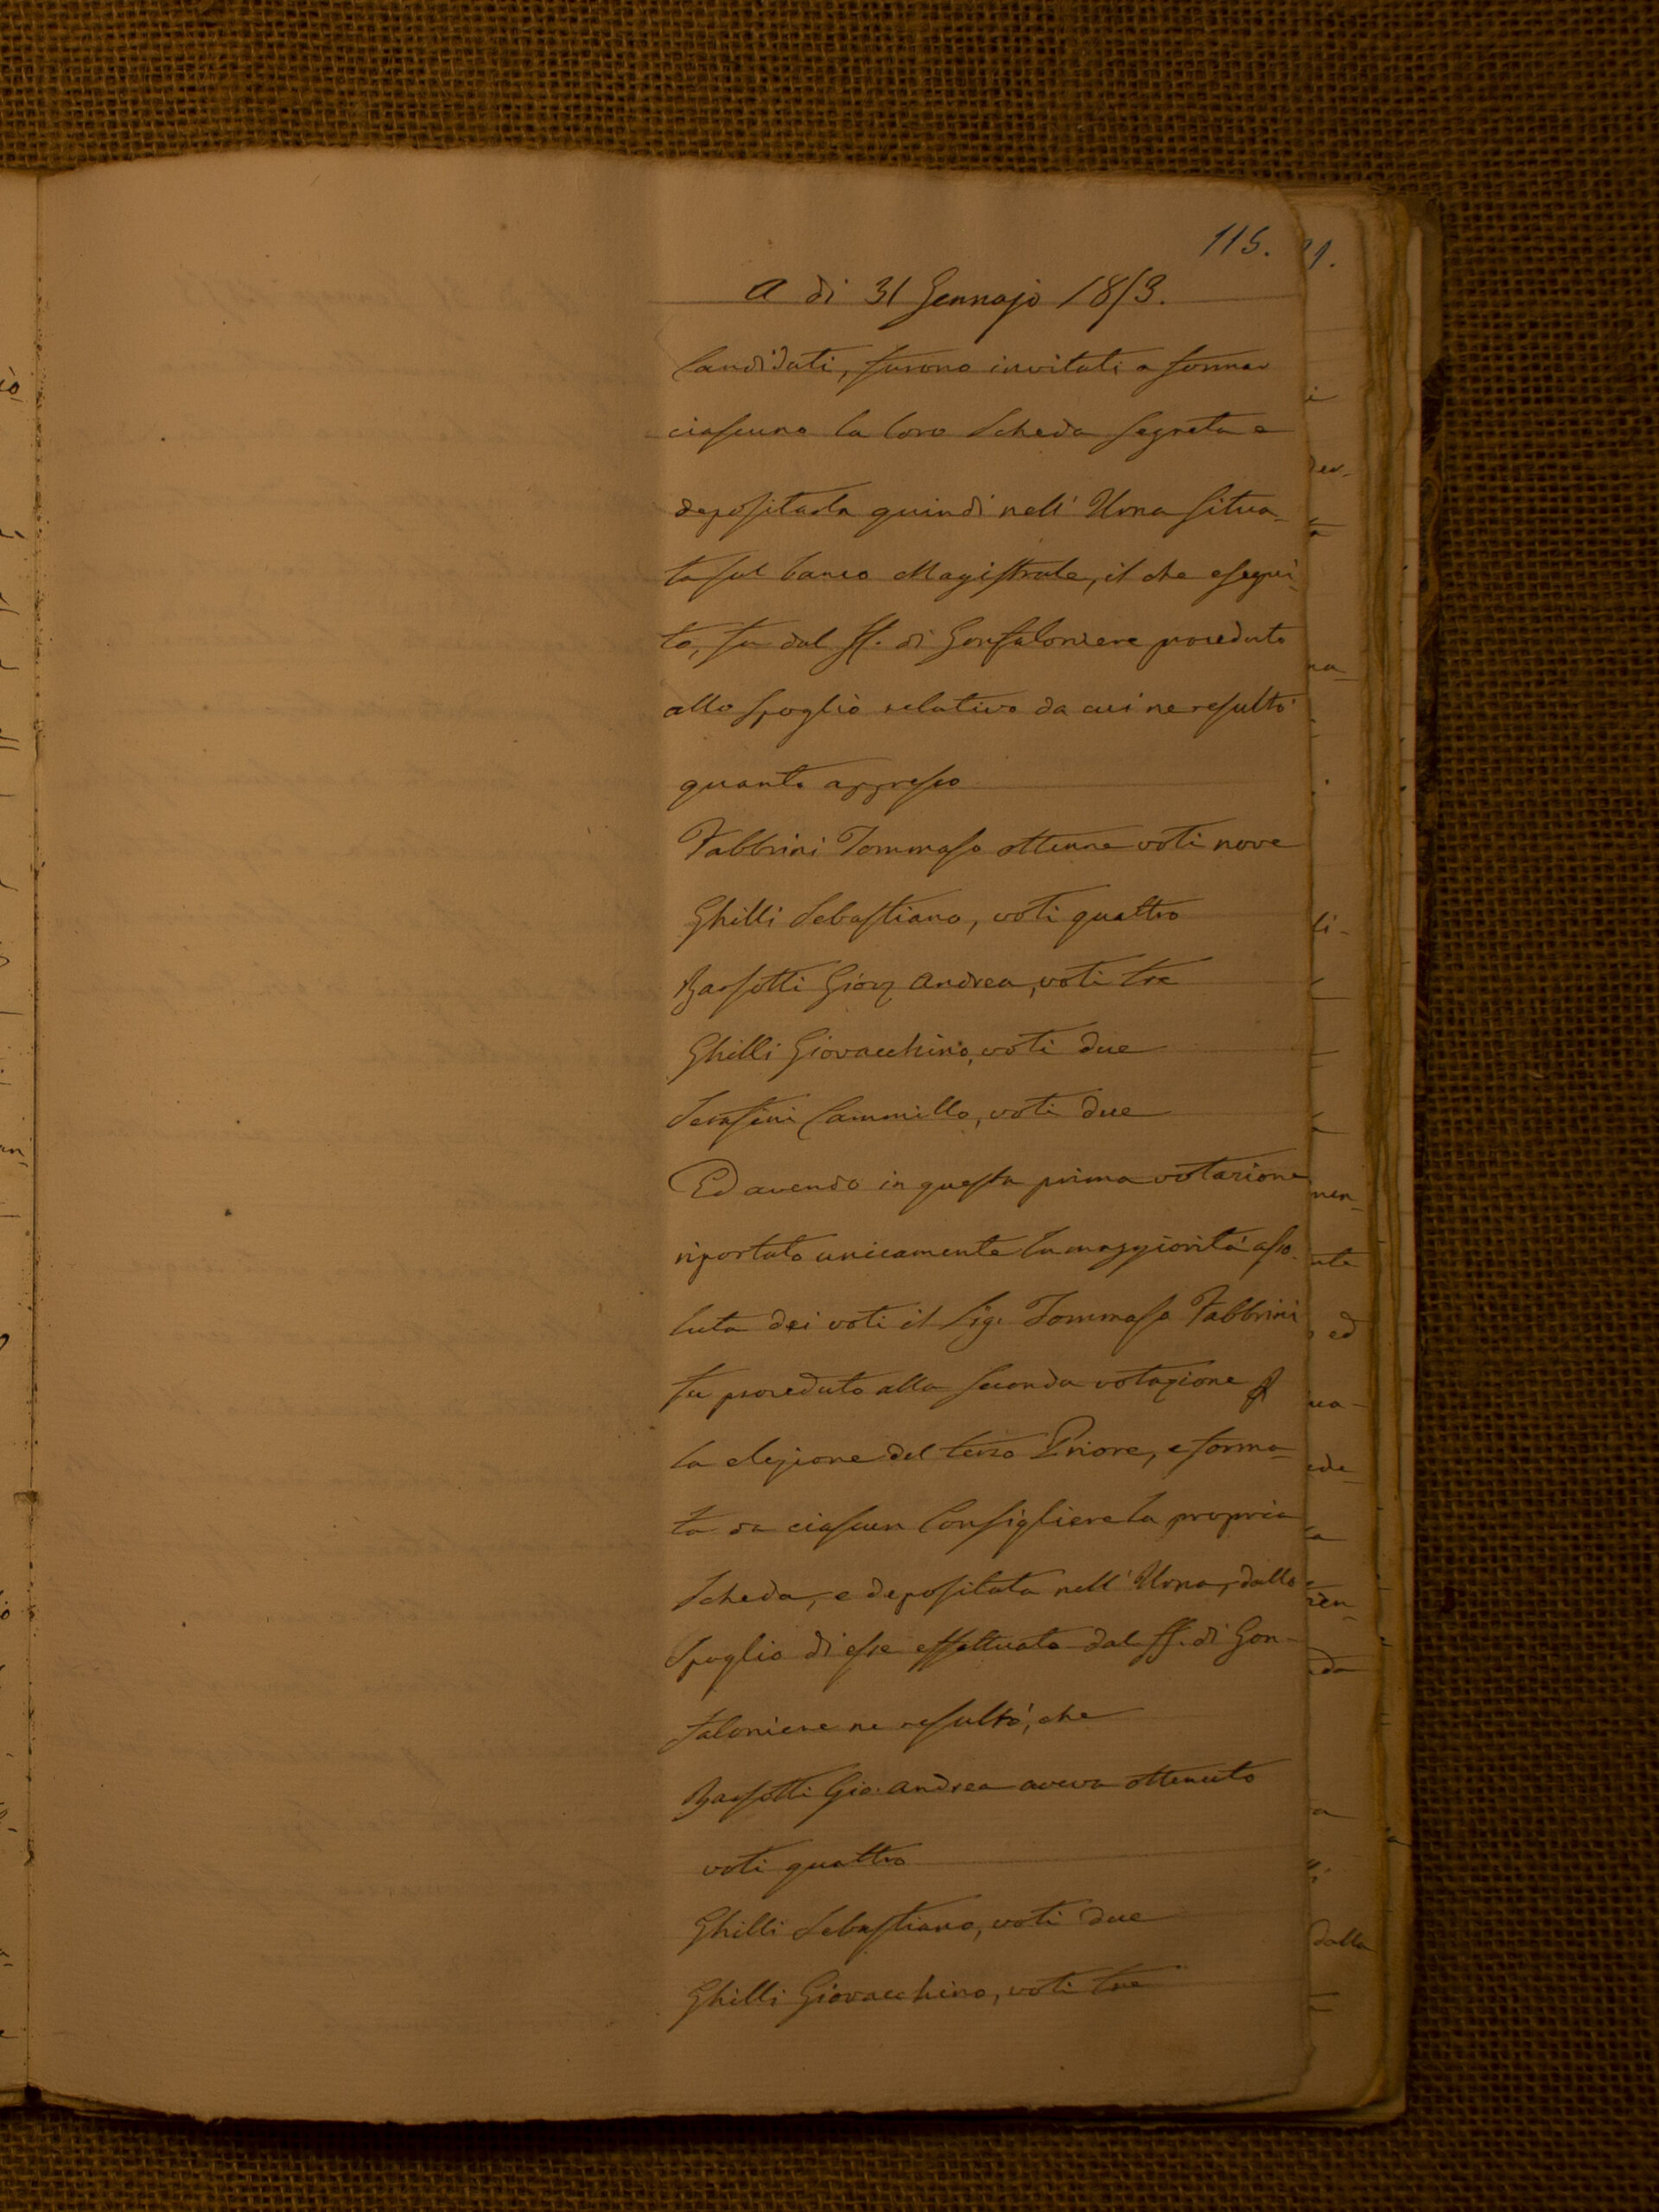 115.
A di 31 Gennajo 1853.
Candidati, furono invitati a formar
ciascuno la loro Scheda segreta e
depositarla quindi nell' Urna situa-
ta sul banco Magistrale, il che esegui-
to, fu dal ff. di Gonfaloniere proceduto
allo spoglio relativo da cui ne resultò
quanto appresso
Fabbrini Tommaso ottenne voti nove
Ghilli Sebastiano, voti quattro
Barsotti Giov Andrea, voti tre
Ghilli Giovacchino, voti due
Serafini Cammillo, voti due
Ed avendo in questa prima votazione
riportato unicamente la maggiorità asso-
luta dei voti il Sig. Tommaso Fabbrini
fu proceduto alla seconda votazione p
la elezione del terzo Priore, e forma-
ta da ciascun Consigliere la propria
Scheda, e depositata nell' Urna, dallo
Spoglio di esse effettuato dal ff. di Gon-
faloniere ne resultò, che
Barsotti Gio. Andrea aveva ottenuto
voti quattro
Ghilli Sebastiano, voti due
Ghilli Giovacchino, voti tre